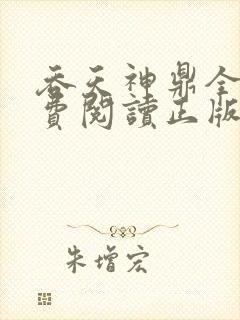 吞天神鼎全
費閱讀正版
朱增宏